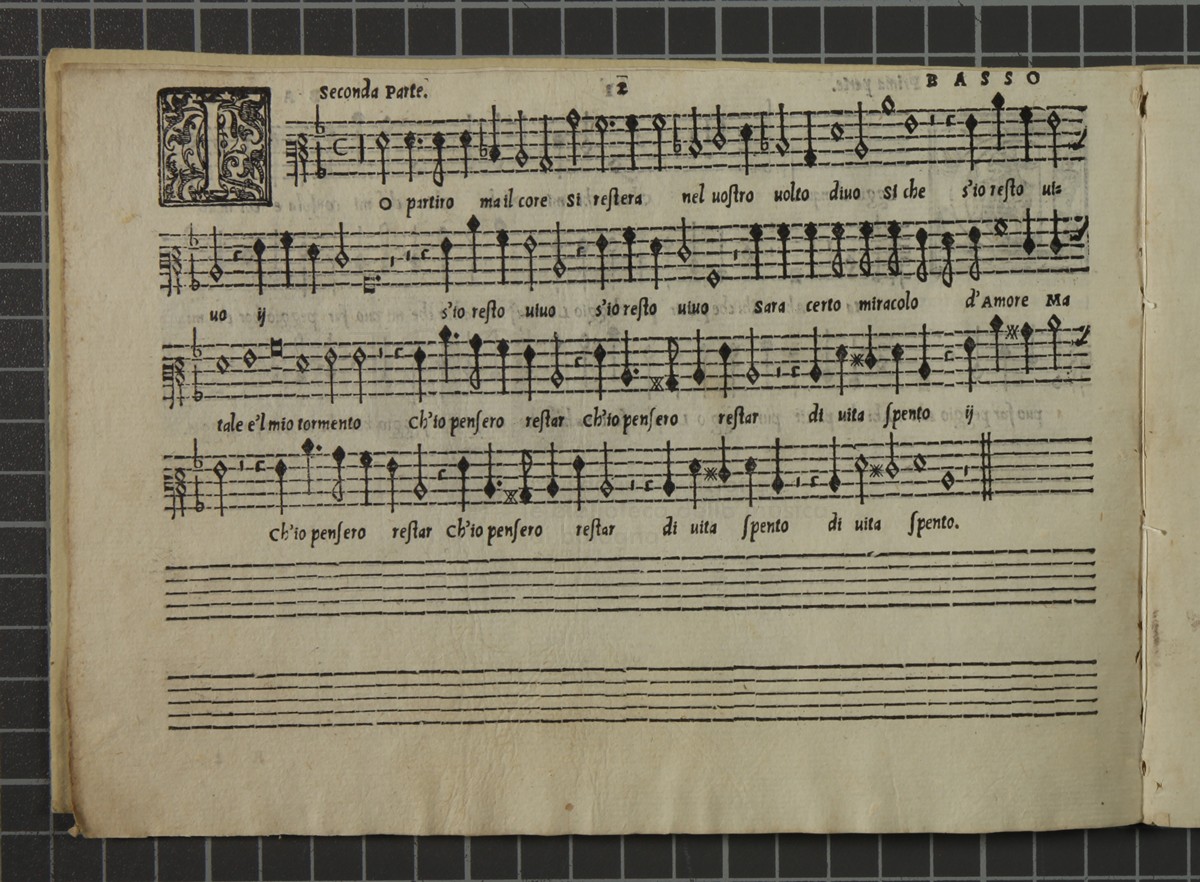 Seconda Parte. 2 BASSO
IO partiro ma il core si restera nel uostro uolto diuo si che s'io resto ui=
uo ij s'io resto uiuo s'io resto uiuo Sara certo miracolo d'Amore Ma
tale e'l mio tormento Ch'io pensero restar Ch'io pensero restar di uita spento ij
Ch'io pensero restar Ch'io pensero restar di uita spento di uita spento.